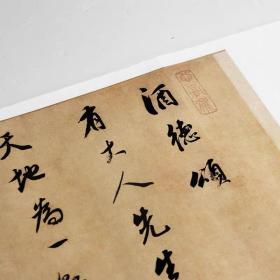 酒德頌
有大人先生
天地為一